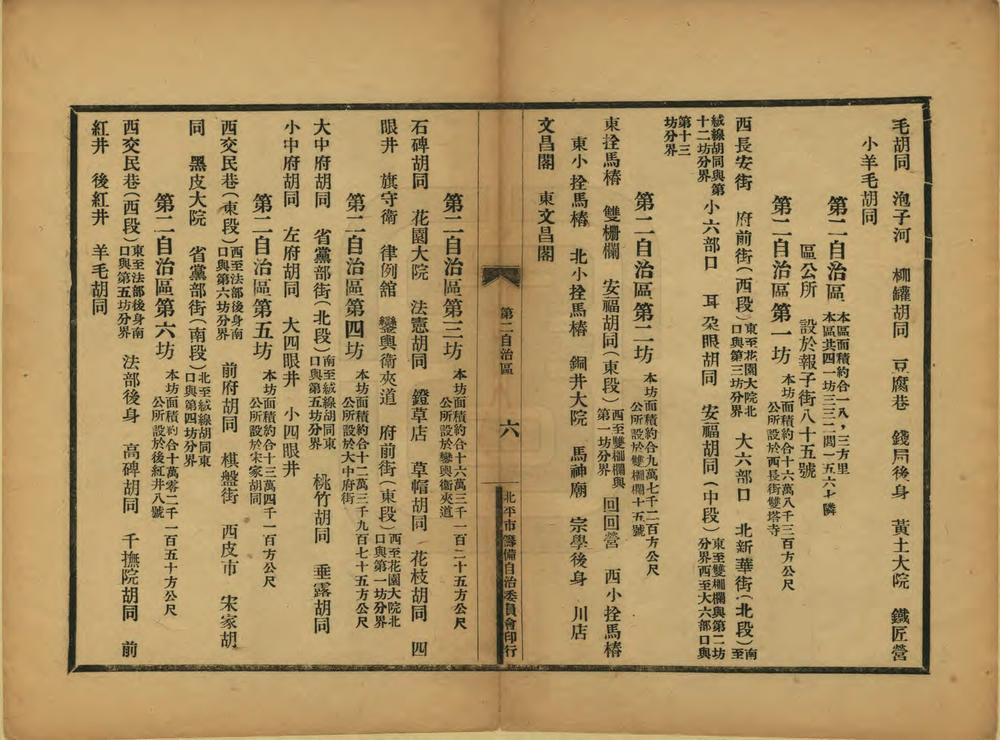 毛胡同　泡子河　柳罐胡同　豆腐巷　錢局後身　黃土大院　鐵匠營
小羊毛胡同
第二自治區
本區面積約合一八，三方里
本區共四一坊三三二閭一五六七隣
區公所　設於報子街八十五號
第二自治區第一坊
本坊面積約合十六萬八千三百方公尺
公所設於西長街雙塔寺
西長安街　府前街（西段）東至花園大院北口與第三坊分界　大六部口　北新華街（北段）南至
絨線胡同與第十二坊分界第十三坊分界　小六部口　耳朶眼胡同　安福胡同（中段）東至雙柵欄與第二坊分界西至大六部口與
第二自治區第二坊
本坊面積約合九萬七千二百方公尺
公所設於雙柵欄十五號
東拴馬樁　雙柵欄　安福胡同（東段）西至雙柵欄與第一坊分界　回回營　西小拴馬樁
東小拴馬樁　北小拴馬樁　銅井大院　馬神廟　宗學後身　川店
文昌閣　東文昌閣
第二自治區
六
北平市籌備自治委員會印行
第二自治區第三坊
本坊面積約合十六萬三千一百二十五方公尺
公所設於鑾輿衛夾道
石碑胡同　花園大院　法憲胡同　鐙草店　草帽胡同　花枝胡同　四
眼井　旗守衛　律例館　鑾輿衛夾道　府前街（東段）西至花園大院北口與第一坊分界
第二自治區第四坊
本坊面積約合十二萬三千九百七十五方公尺
公所設於大中府街
大中府胡同　省黨部街（北段）南至絨線胡同東口與第五坊分界　桃竹胡同　垂露胡同
小中府胡同　左府胡同　大四眼井　小四眼井
第二自治區第五坊
本坊面積約合十三萬四千一百方公尺
公所設於宋家胡同
西交民巷（東段）西至法部後身南口與第六坊分界　前府胡同　棋盤街　西皮市　宋家胡
同　黑皮大院　省黨部街（南段）北至絨線胡同東口與第四坊分界
第二自治區第六坊
本坊面積約合十萬零二千一百五十方公尺
公所設於後紅井八號
西交民巷（西段）東至法部後身南口與第五坊分界　法部後身　高碑胡同　千撫院胡同　前
紅井　後紅井　羊毛胡同